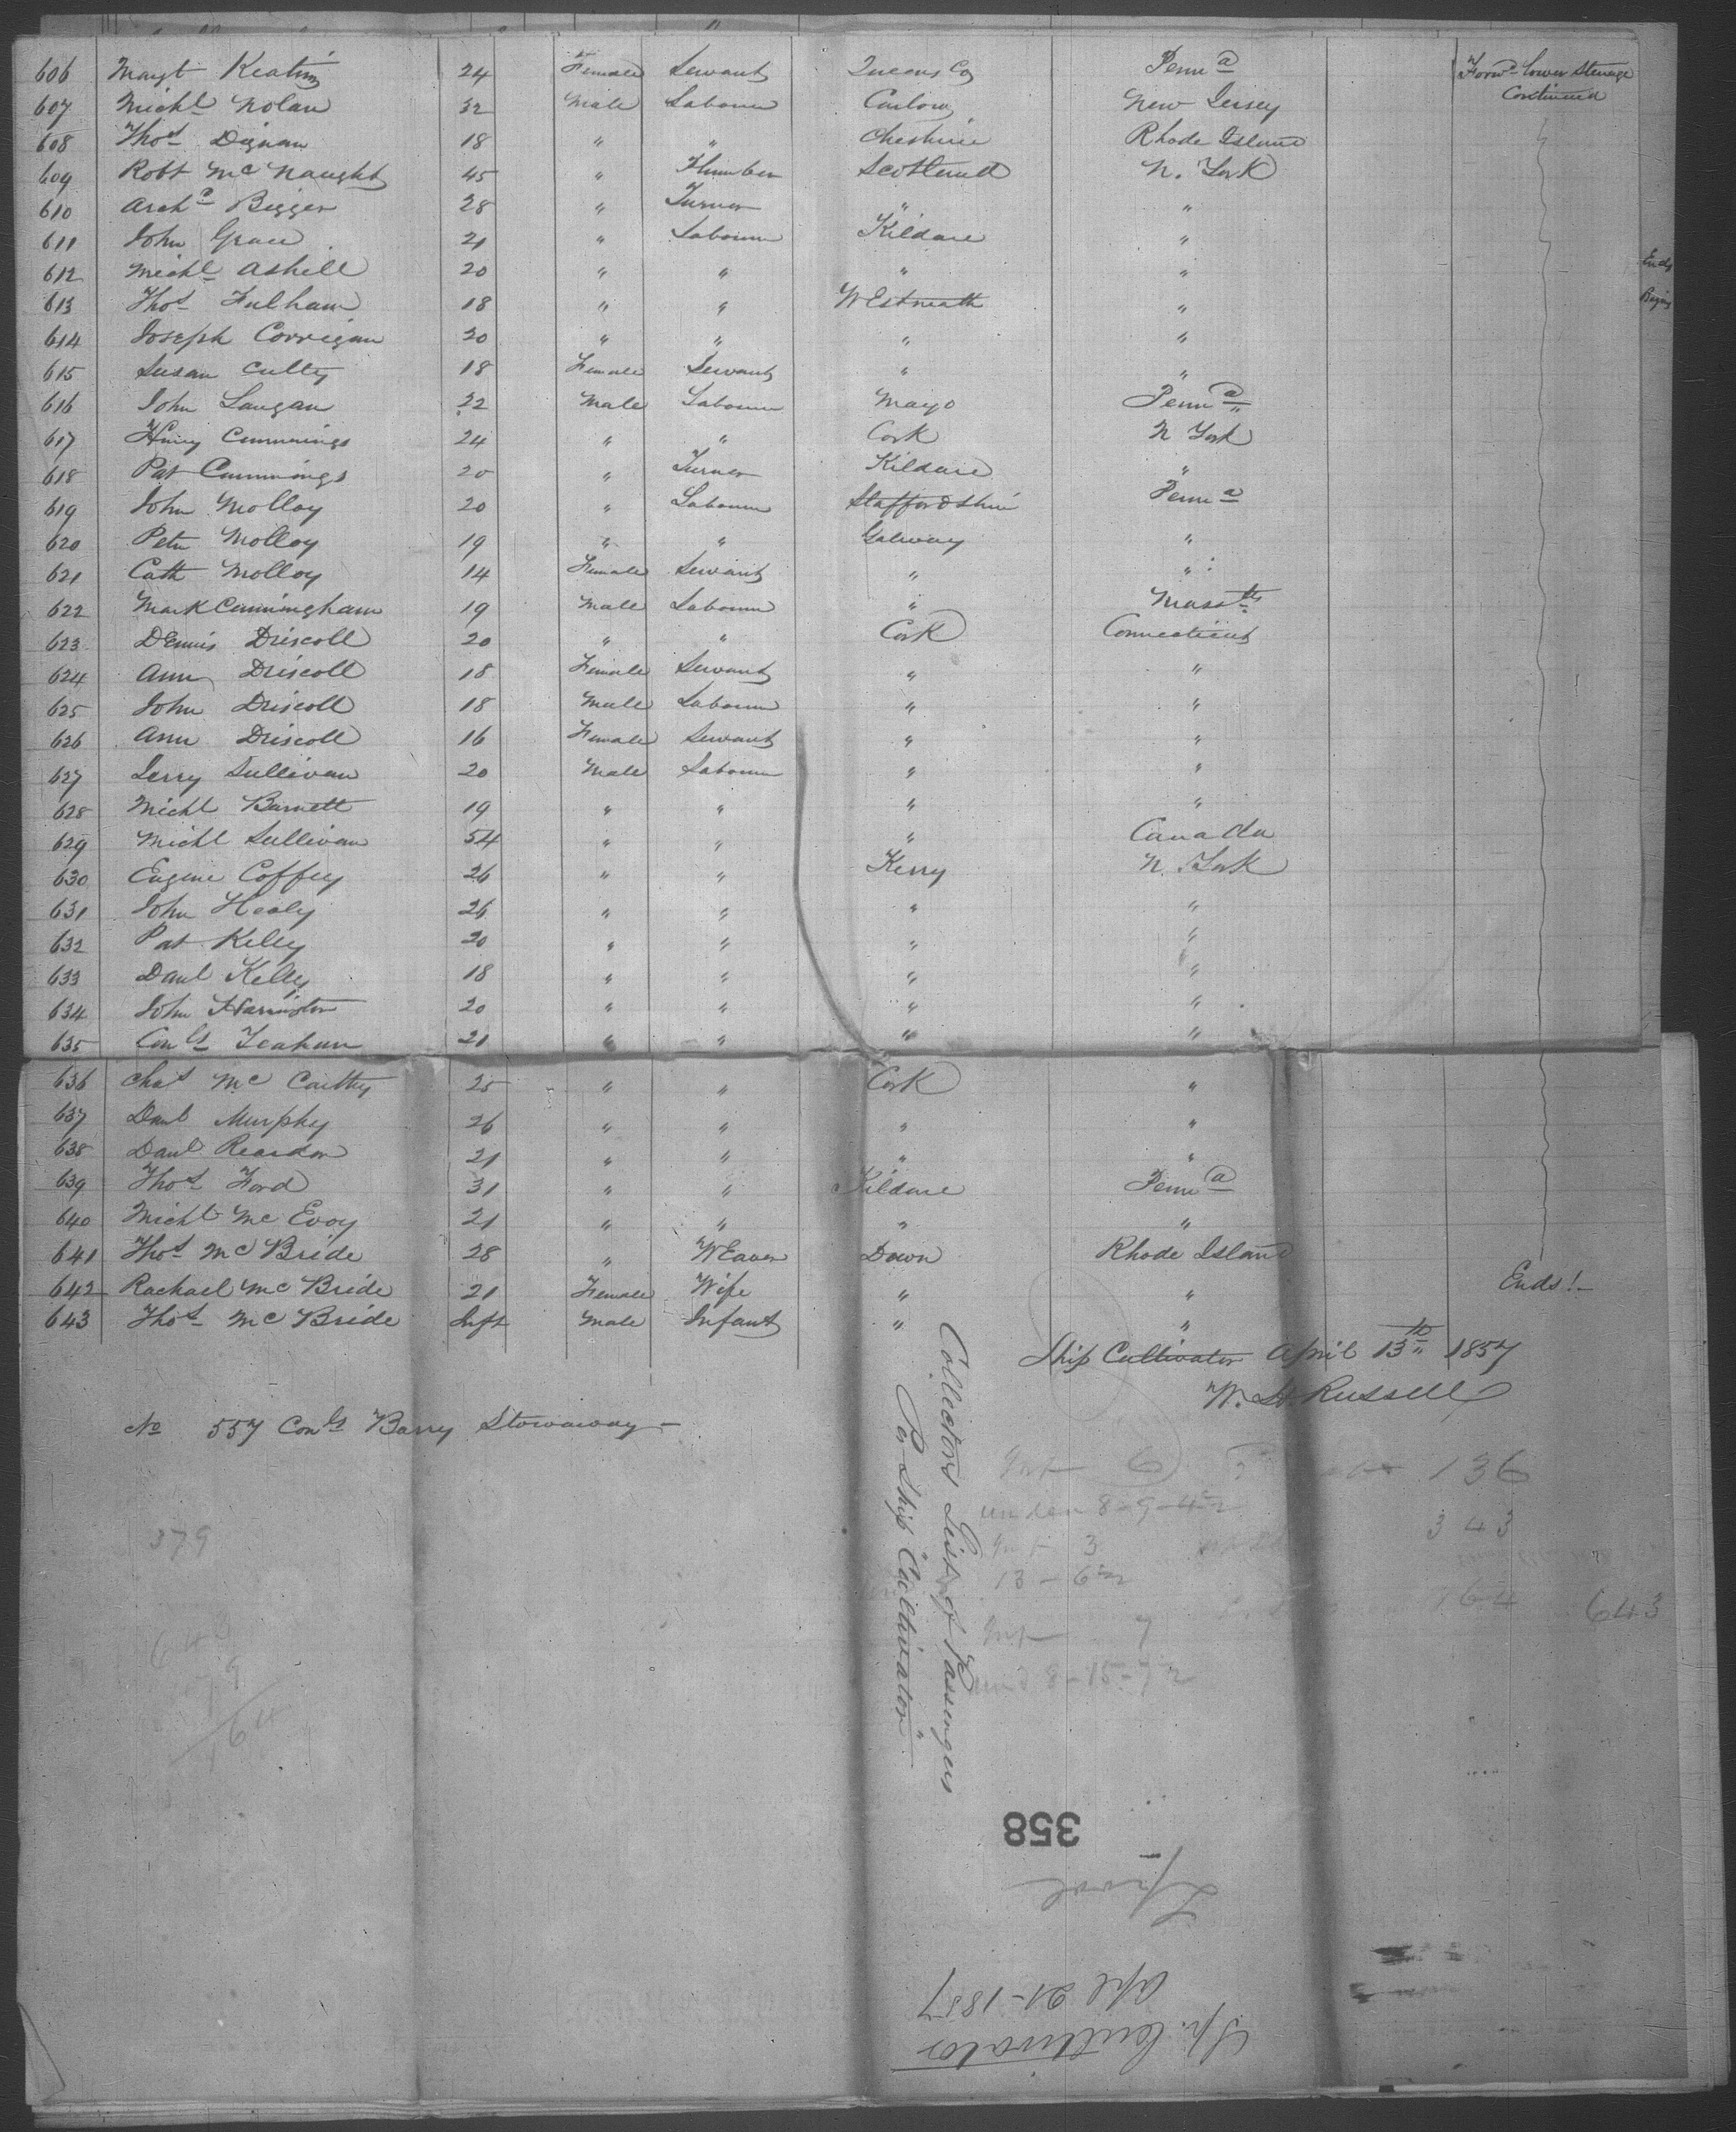 606 Margt Keating 24 Female Servant Queens Co Penna Forwd lower Steerage
Continued
607 Michl Nolan 32 Male Labourer Carlow New Jersey
608 Thos Dignan 18 " " Cheshire Rhode Island
609 Robt McNaught 45 " Plumber Scotland N. York
610 Archd Bigger 28 " Turner " "
611 John Grace 21 " Labourer Kildare "
612 Michl Ashill 20 " " " " Ends
613 Thos Fulham 18 " " Westmeath " Begins
614 Joseph Corrigan 20 " " " "
615 Susan Culty 18 Female Servant " "
616 John Langan 22 Male Labourer Mayo Penna "
617 Henry Cummings 24 " " Cork N York
618 Pat Cummings 20 " Turner Kildare "
619 John Molloy 20 " Labourer Staffordshire Penna
620 Peter Molloy 19 " " Galway "
621 Cath Molloy 14 Female Servant " "
622 Mark Cunningham 19 Male Labourer " Massts
623 Dennis Driscoll 20 " " Cork Connecticut
624 Ann Driscoll 18 Female Servant " "
625 John Driscoll 18 Male Labourer " "
626 Ann Driscoll 16 Female Servant " "
627 Jerry Sullivan 20 Male Labourer " "
628 Michl Barnett 19 " " " "
629 Michl Sullivan 54 " " " Canada
630 Eugene Coffey 26 " " Kerry N. York
631 John Healy 26 " " " "
632 Pat Kelly 20 " " " "
633 Danl Kelly 18 " " " "
634 John Harrington 20 " " " "
635 Cons Teahan 21 " " " "
636 Chas McCarthy 25 " " Cork "
637 Danl Murphy 26 " " " "
638 Danl Reardon 21 " " " "
639 Thos Ford 31 " " Kildare Penna
640 Michl McEvoy 21 " " " "
641 Thos McBride 28 " Weaver Down Rhode Island
642 Rachael McBride 21 Female Wife " " Ends!-
643 Thos McBride Inft Male Infant " "
Ship Cultivator April 13th 1857
W. H. Russell
No 557 Cons Barry Stowaway -
Collectors List of Passengers
Per Ship "Cultivator"
Inf 6 136
under 8-9-4½
343
Inf 3
13-6½
164 643
Inf 7
und 8-15-7½
379
358
Lpool
Apl 21-1857
Sp. Cultivator